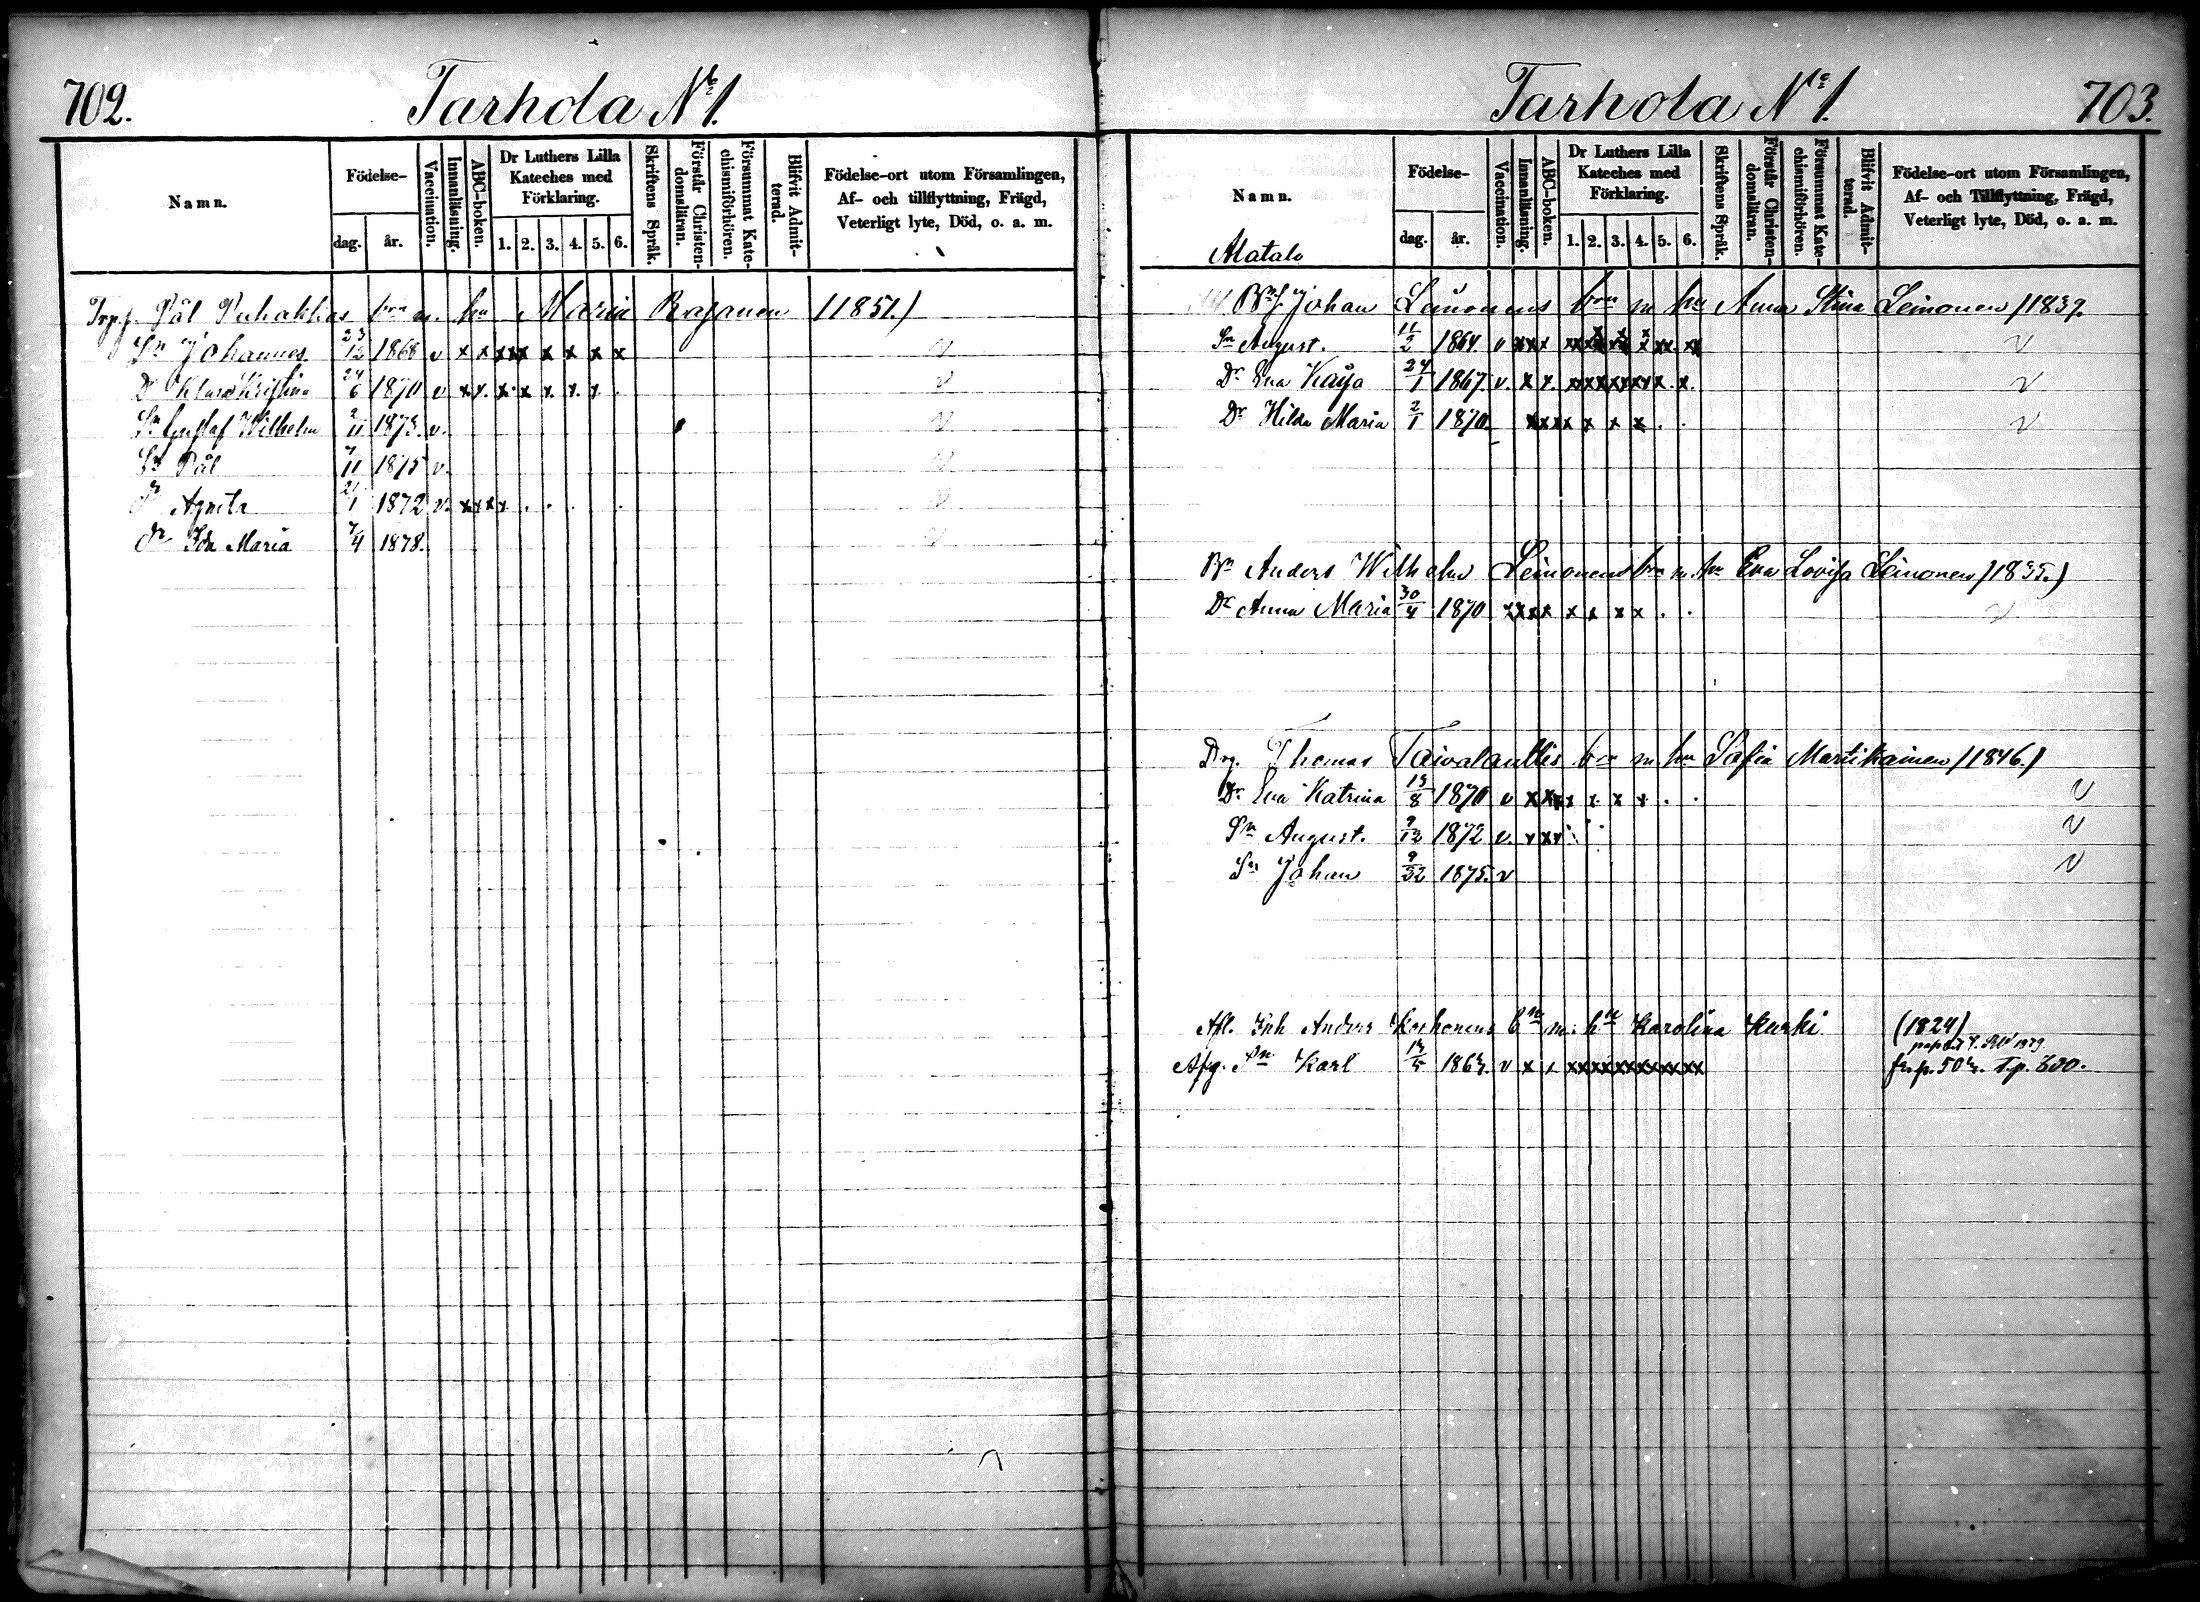 702.
Tarhola No 1.
Namn.
Födelse-
dag.
år.
Vaccination.
Innanläsning.
ABC-boken.
Dr Luthers Lilla
Kateches med
Förklaring.
1. 2. 3. 4. 5. 6.
Skriftens Språk.
Förstår Christen-
domsläran.
Försummat Kate-
chismiförhören.
Blifvit Admit-
terad.
Födelse-ort utom Församlingen,
Af- och tillflyttning, Frägd,
Veterligt lyte, Död, o. a. m.
Pål m. hu Maria (1851.)
Sn Johannes 23/12 1868 v x x x x x x x x x v
Dr Klara Kristina 24/6 1870 v x x. x. x x x. x . v
Sn Gustaf Wilhelm 2/11 1873. v. v
Sn Pål 7/11 1875 v. v
Dr Agneta 21/1 1872 v. x x x x . . . . v
Dr Ida Maria 7/4 1878. v
Tarhola No 1.
703.
Namn.
Matalo
Födelse-
dag.
år.
Vaccination.
Innanläsning.
ABC-boken.
Dr Luthers Lilla
Kateches med
Förklaring.
1. 2. 3. 4. 5. 6.
Skriftens Språk.
Förstår Christen-
domsläran.
Försummat Kate-
chismiförhören.
Blifvit Admit-
terad.
Födelse-ort utom Församlingen,
Af- och Tillflyttning, Frägd,
Veterligt lyte, Död, o. a. m.
Johan Leinonens brn m hu Anna Stina Leinonen (1839.
Sn August. 11/2 1864. v x x x x x x x x x x x v
Dr Eva Kaisa 24/1 1867. v. x x. x x x x x x x x. x. v
Dr Hilda Maria 2/1 1870. x x x x x x x . . v
Bn Anders Wilhelm Leinonens brn m. hu Eva Lovisa Leinonen (1835.)
Dr Anna Maria 30/4 1870 x x x x x x x x . . v
Drg. Thomas m. hu Sofia Martikainen (1846.)
Dr Eva Katrina 15/8 1870 v x x x x x x x . . v
Sn August. 9/12 1872 v. x x x v
Sn Johan 1875. v v
Afl. Inh Anders Korhonens bn m: hu Karolina Kurki (1824)
Afg. Sn Karl 1863. v x x x x x x x x x x x x x